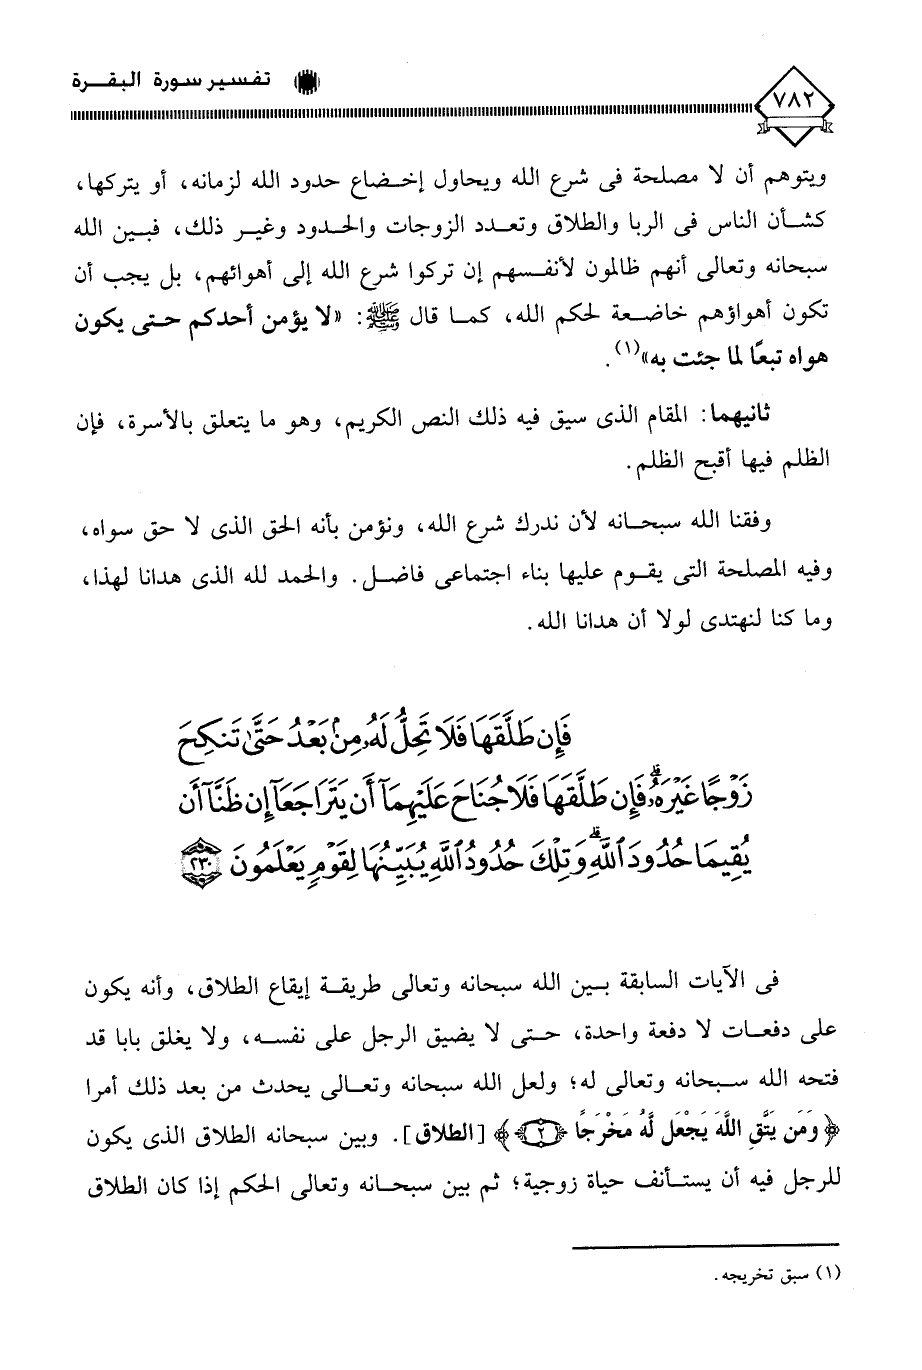 تفسير سورة البقرة
٧٨٢
ويتوهم أن لا مصلحة فى شرع الله ويحاول إخضاع حدود الله لزمانه، أو يتركها،
كشأن الناس فى الربا والطلاق وتعدد الزوجات والحدود وغير ذلك، فبين الله
سبحانه وتعالى أنهم ظالمون لأنفسهم إن تركوا شرع الله إلى أهوائهم، بل يجب أن
تكون أهواؤهم خاضعة لحكم الله، كما قال ﷺ: «لا يؤمن أحدكم حتى يكون
هواه تبعًا لما جئت به»(١).
ثانيهما: المقام الذى سيق فيه ذلك النص الكريم، وهو ما يتعلق بالأسرة، فإن
الظلم فيها أقبح الظلم.
وفقنا الله سبحانه لأن ندرك شرع الله، ونؤمن بأنه الحق الذى لا حق سواه،
وفيه المصلحة التى يقوم عليها بناء اجتماعى فاضل. والحمد لله الذى هدانا لهذا،
وما كنا لنهتدى لولا أن هدانا الله.
فَإِن طَلَّقَهَا فَلَا تَحِلُّ لَهُۥ مِنۢ بَعْدُ حَتَّىٰ تَنكِحَ
زَوْجًا غَيْرَهُۥۗ فَإِن طَلَّقَهَا فَلَا جُنَاحَ عَلَيْهِمَآ أَن يَتَرَاجَعَآ إِن ظَنَّآ أَن
يُقِيمَا حُدُودَ ٱللَّهِۗ وَتِلْكَ حُدُودُ ٱللَّهِ يُبَيِّنُهَا لِقَوْمٍ يَعْلَمُونَ ٢٣٠
فى الآيات السابقة بين الله سبحانه وتعالى طريقة إيقاع الطلاق، وأنه يكون
على دفعات لا دفعة واحدة، حتى لا يضيق الرجل على نفسه، ولا يغلق بابا قد
فتحه الله سبحانه وتعالى له؛ ولعل الله سبحانه وتعالى يحدث من بعد ذلك أمرا
﴿وَمَن يَتَّقِ اللَّهَ يَجْعَل لَّهُ مَخْرَجًا ٢﴾ [الطلاق]. وبين سبحانه الطلاق الذى يكون
للرجل فيه أن يستأنف حياة زوجية؛ ثم بين سبحانه وتعالى الحكم إذا كان الطلاق
(١) سبق تخريجه.